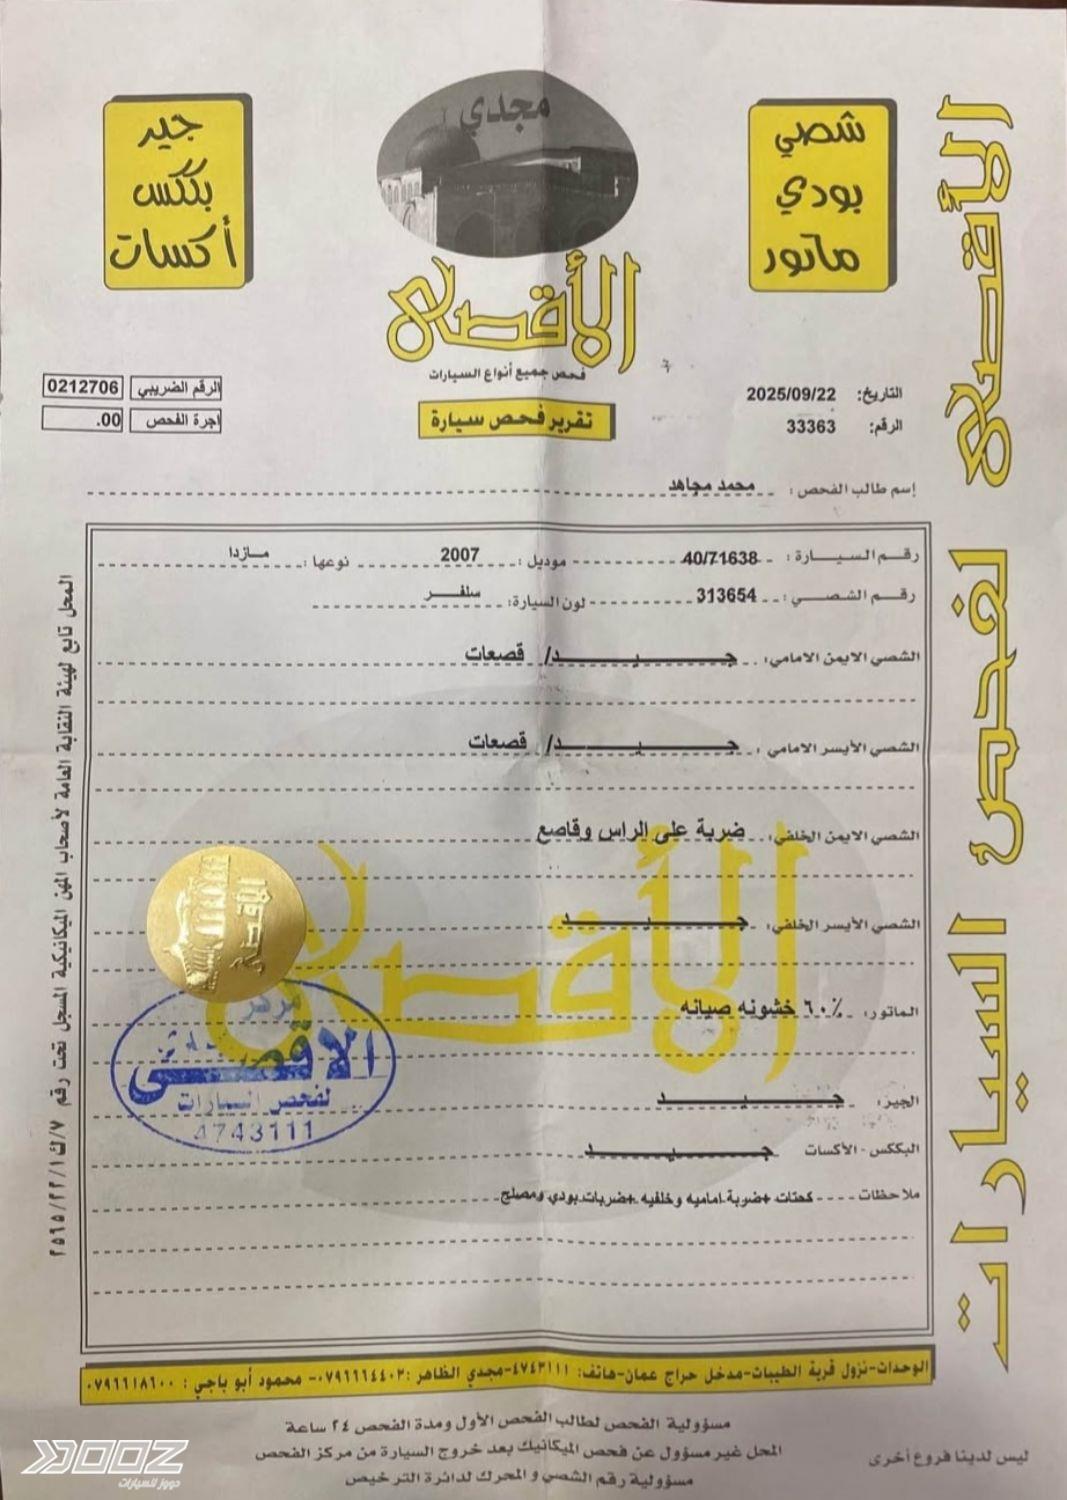 جير
بككس
أكسات
مجدي
شصي
بودي
ماتور
الأقصى
فحص جميع أنواع السيارات
تقرير فحص سيارة
الرقم الضريبي 0212706
اجرة الفحص .00
التاريخ: 2025/09/22
الرقم: 33363
إسم طالب الفحص: محمد مجاهد
رقم السيارة: 40/71638 موديل: 2007 نوعها: مازدا
رقم الشصي: 313654 لون السيارة: سلفر
الشصي الايمن الامامي: جيد/ قصعات
الشصي الأيسر الامامي: جيد/ قصعات
الشصي الايمن الخلفي: ضربة على الراس وقاصع
الشصي الأيسر الخلفي: جيد
الماتور: ٦٠٪ خشونه صيانه
الجير: جيد
البككس - الأكسات جيد
ملاحظات كحتات +ضربة اماميه وخلفيه +ضربات بودي ومصلح
الأقصى
الأقصى
مركز
الاقصى
لفحص السيارات
4743111
المحل تابع لهيئة النقابة العامة لأصحاب المهن الميكانيكية المسجل تحت رقم ٧/ك/٢٢/١/٢٥٩٥
الأقصى لفحص السيارات
الوحدات-نزول قرية الطيبات-مدخل حراج عمان-هاتف: ٤٧٤٣١١١-مجدي الظاهر: ٠٧٩٦٦٦٤٤٠٣- محمود أبو ياجي: ٠٧٩٦٦١٨٦٠٠
مسؤولية الفحص لطالب الفحص الأول ومدة الفحص ٢٤ ساعة
المحل غير مسؤول عن فحص الميكانيك بعد خروج السيارة من مركز الفحص
مسؤولية رقم الشصي و المحرك لدائرة الترخيص
ليس لدينا فروع أخرى
DOOZ
دووز للسيارات